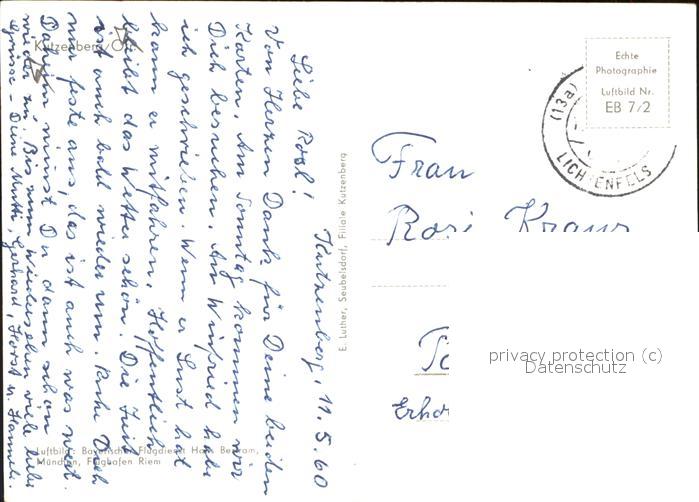 Kutzenberg/Ofr.
Kutzenberg, 11.5.60
Liebe Rosl!
Von Herzen Dank für Deine beiden
Karten. Am Sonntag kommen wir
Dich besuchen. An Winfried habe
ich geschrieben. Wenn er Lust hat
kann er mitfahren. Hoffentlich
bleibt das Wetter schön. Die Zeit
ist auch bald wieder um. Ruhe Dich
nur feste aus, das ist auch was wert.
Daheim nimmst Du dann schon
wieder zu. Bis zum Wiedersehen viele liebe
Grüsse - Deine Mutti, Gerhard, Horst u. Hannele.
Luftbild: Bayerischer Flugdienst Hans Bertram,
München, Flughafen Riem
E. Luther, Seubelsdorf, Filiale Kutzenberg
Echte
Photographie
Luftbild Nr.
EB 7/2
(13a)
LICHTENFELS
Frau
Rosi Kraus
Erho
privacy protection (c)
Datenschutz